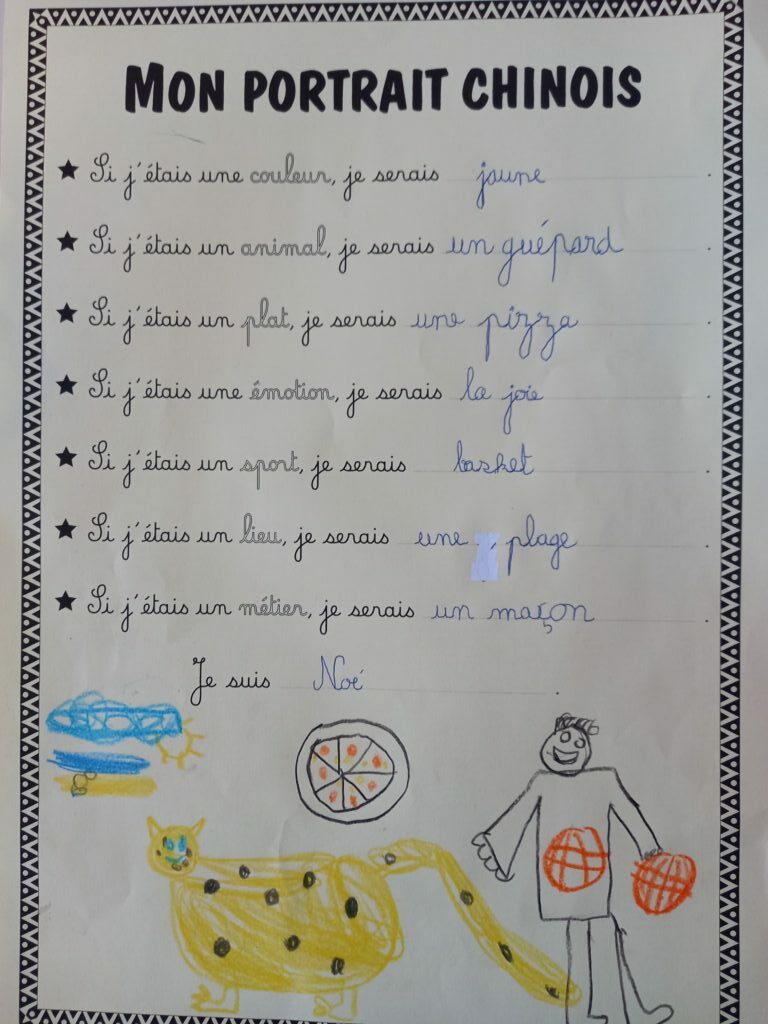 MON PORTRAIT CHINOIS
★ Si j'étais une couleur, je serais jaune.
★ Si j'étais un animal, je serais un guépard.
★ Si j'étais un plat, je serais une pizza.
★ Si j'étais une émotion, je serais la joie.
★ Si j'étais un sport, je serais basket.
★ Si j'étais un lieu, je serais une plage.
★ Si j'étais un métier, je serais un maçon.
Je suis Noé.